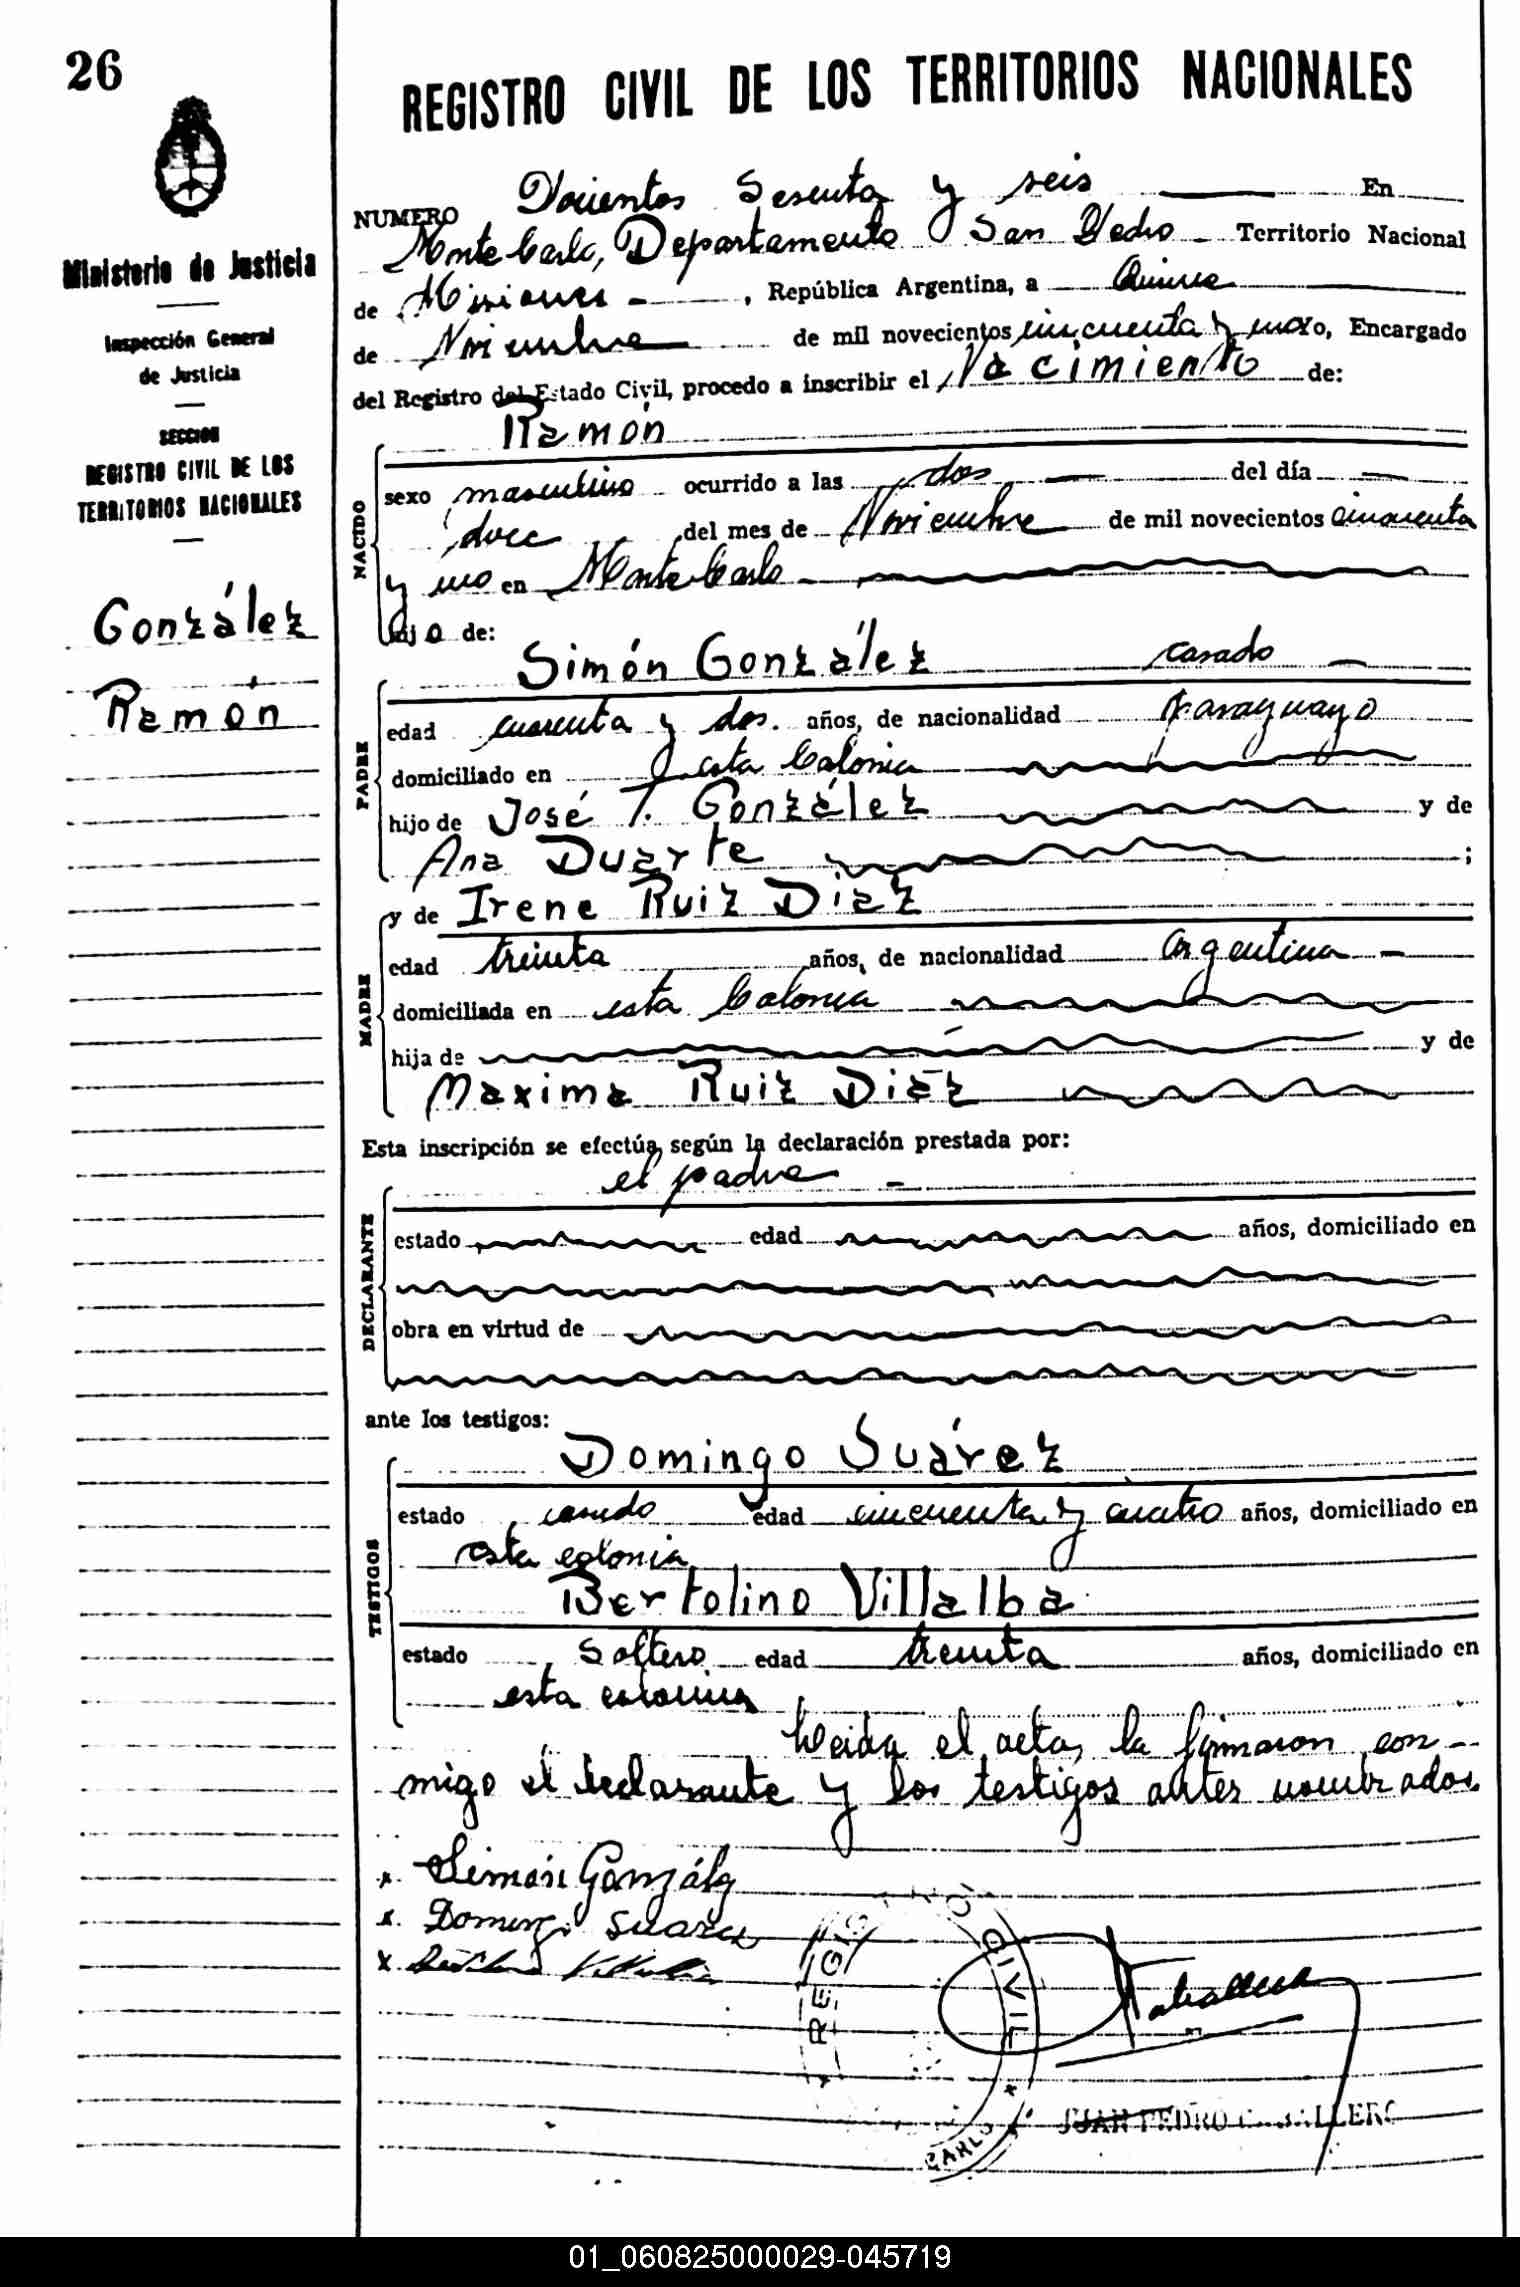 26
Ministerio de Justicia
Inspección General
de Justicia
SECCION
REGISTRO CIVIL DE LOS
TERRITORIOS NACIONALES
González
Ramón
REGISTRO CIVIL DE LOS TERRITORIOS NACIONALES
NUMERO Doscientos Sesenta y seis En
Monte Carlo, Departamento San Pedro Territorio Nacional
de Misiones, República Argentina, a Quince
de Noviembre de mil novecientos cincuenta y uno yo, Encargado
del Registro del Estado Civil, procedo a inscribir el Nacimiento de:
Ramón
NACIDO
sexo masculino ocurrido a las dos del día
doce del mes de Noviembre de mil novecientos cincuenta
y uno en Monte Carlo
hijo de:
Simón González casado
PADRE
edad cuarenta y dos años, de nacionalidad paraguayo
domiciliado en esta Colonia
hijo de José T. González y de
Ana Duarte ;
y de Irene Ruiz Diaz
MADRE
edad treinta años, de nacionalidad argentina
domiciliada en esta Colonia
hija de y de
Maxima Ruiz Diaz
Esta inscripción se efectúa según la declaración prestada por:
el padre
DECLARANTE
estado edad años, domiciliado en
obra en virtud de
ante los testigos:
Domingo Suárez
TESTIGOS
estado casado edad cincuenta y cuatro años, domiciliado en
esta colonia
Bertolino Villalba
estado soltero edad treinta años, domiciliado en
esta colonia
Leida el acta, la firmaron con-
migo el declarante y los testigos antes nombrados.
x Simón González
x Domingo Suarez
x
REGISTRO CIVIL
CARLO
JUAN PEDRO CABALLERO
01_060825000029-045719